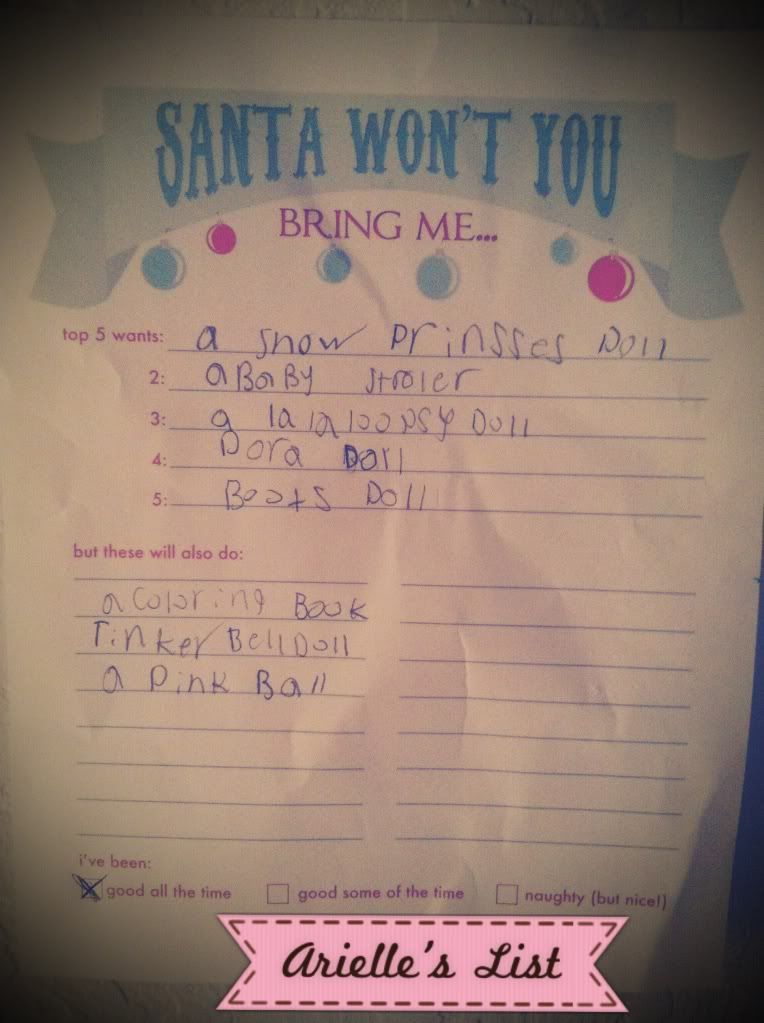 SANTA WON'T YOU
BRING ME...
top 5 wants: a snow prinsses Doll
2: a BaBy stroler
3: a lalaloopsy Doll
4: Dora Doll
5: Boots Doll
but these will also do:
a coloring Book
Tinker Bell Doll
a Pink Ball
i've been:
good all the time good some of the time naughty (but nice!)
Arielle's List